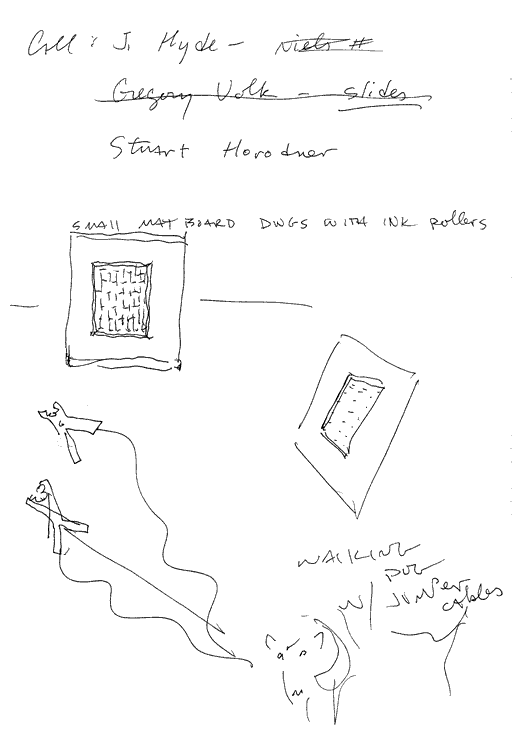 Call: J. Hyde - Niels #
Gregory Volk - slides
Stuart Horodner
SMALL MAT BOARD DWGS WITH INK rollers
WALKING
DOG
W/ JUMPER
CABLES